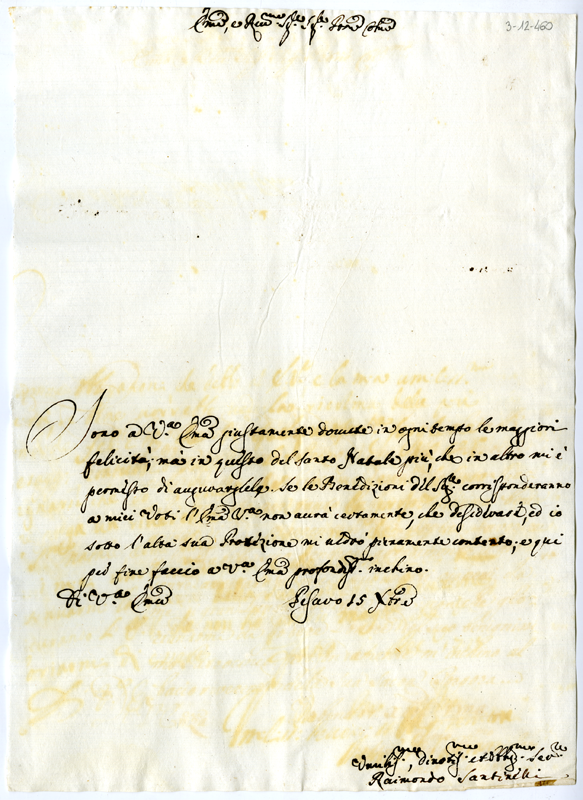 Em̃a, e Reu.ma S.re S.re P̃ñe Colm̃o
3-12-460
Sono a V.ra Em̃a giustamente douute in ogni tempo le maggiori
felicità; mà in questo del Santo Natale più, che in altro mi è
permesso di augurargliele. Se le Benedizioni del Sig.re corrisponderanno
a miei Voti l'Em̃a V.ra non aurà certamente, che desiderare, ed io
sotto l'alta sua Protezione mi uedrò pienamente contento, e qui
per fine faccio a V.ra Em̃a profond.te inchino.
Di V.ra Em̃a Pesaro 15 Xbre
Umilis.mo, diuotis.mo et obb.mo Ser.re
Raimondo Santinelli